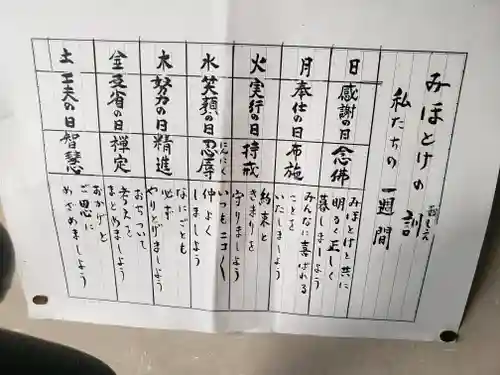 みほとけの訓
おしえ
私たちの一週間
日
感謝の日
念佛
みほとけと共に
明るく正しく
暮しましょう
月
奉仕の日
布施
みんなに喜ばれる
ことを
いたしましょう
火
実行の日
持戒
約束と
きまりを
守りましょう
水
笑顔の日
忍辱
にんにく
いつもニコ〱
仲よく
しましょう
木
努力の日
精進
なにごとも
必ず
やりとげましょう
金
反省の日
禅定
おちついて
考えを
まとめましょう
土
工夫の日
智慧
おかげと
ご恩に
めざめましょう